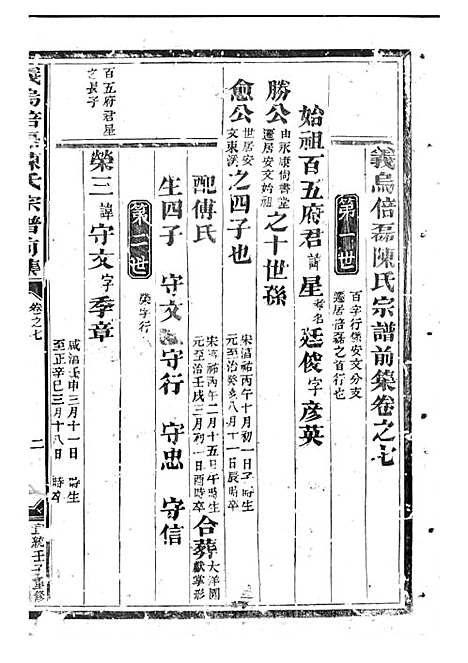 義烏倍磊陳氏宗譜前集卷之七
第一世
百字行係安文分支
遷居倍磊之首行也
始祖百五府君諱星考名廷俊字彦英
勝公由永康尚書堂
遷居安文始祖之十世孫
愈公世居安
文東溪之四子也
宋淳祐丙午十月初一日子時生
元至治癸亥八月十一日辰時卒
配傅氏
宋淳祐丙午二月十五日午時生
元至治壬戌三月初一日酉時卒
合葬大洋園
獻掌形
生四子 守文 守行 守忠 守信
第二世
榮字行
百五府君星
之長子
榮三諱守文字季章
咸淳壬申三月十一日 時生
至正辛巳三月十八日 時卒
義烏倍磊陳氏宗譜前集
卷之七
二
宣統壬子重修